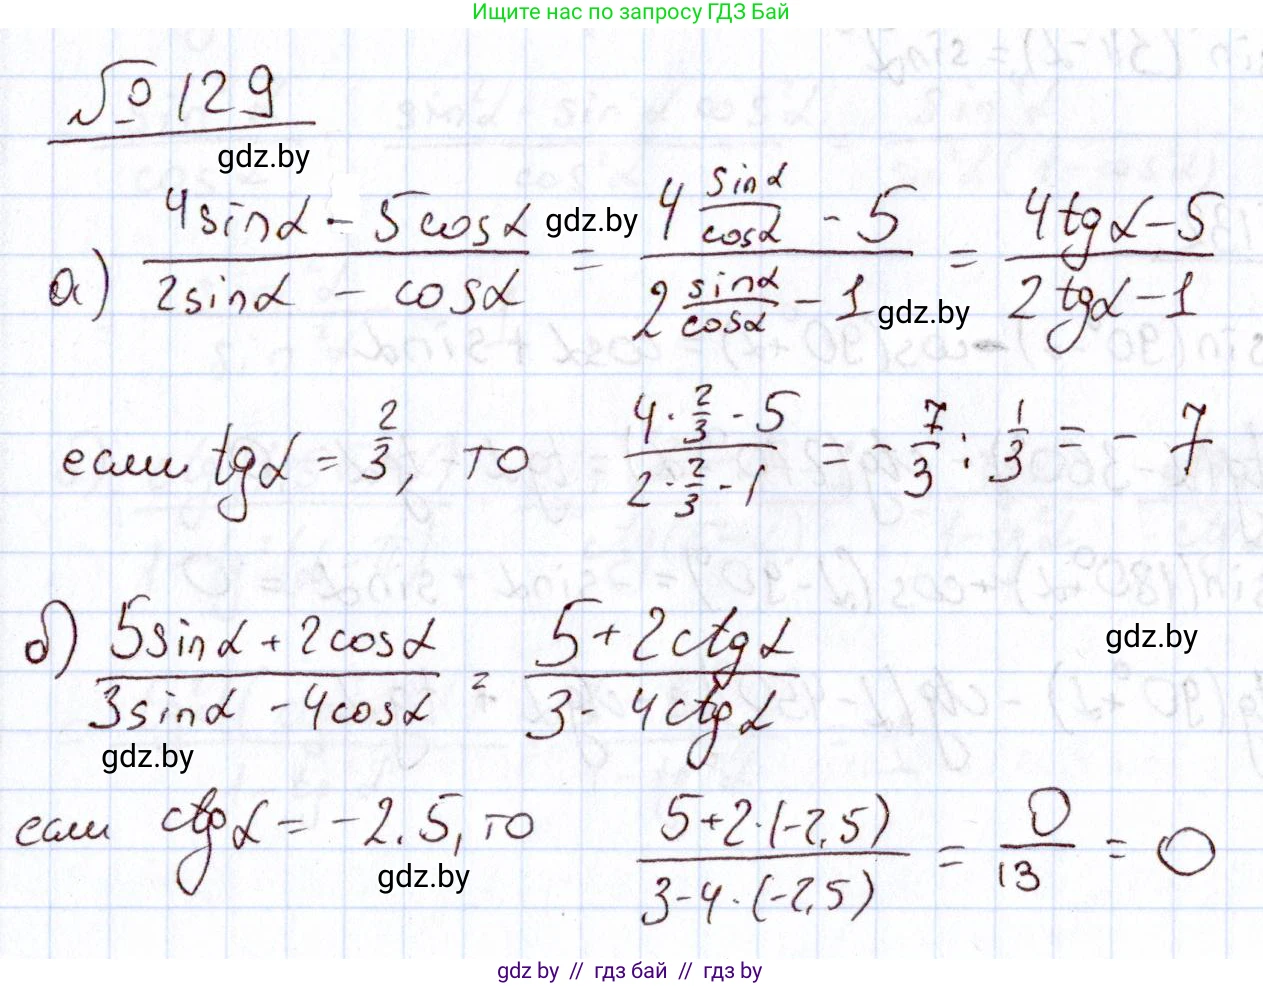 Ищите нас по запросу ГДЗ Бай
№ 129
gdz.by
а) (4sinα - 5cosα)/(2sinα - cosα) = (4 sinα/cosα - 5)/(2 sinα/cosα - 1) = (4tgα - 5)/(2tgα - 1)
gdz.by
gdz.by
если tgα = 2/3, то (4 · 2/3 - 5)/(2 · 2/3 - 1) = - 7/3 : 1/3 = - 7
б) (5sinα + 2cosα)/(3sinα - 4cosα) = (5 + 2ctgα)/(3 - 4ctgα)
gdz.by
gdz.by
если ctgα = -2.5, то (5+2·(-2,5))/(3-4·(-2,5)) = 0/13 = 0
gdz.by
gdz by // гдз бай // гдз by